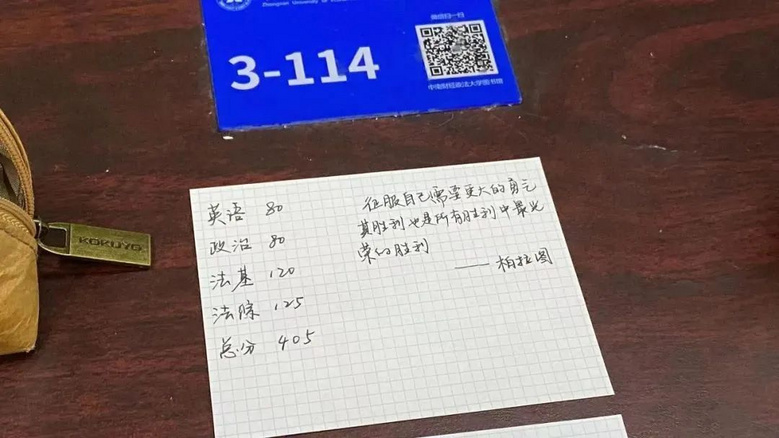 3-114
微信扫一扫
中南财经政法大学图书馆
KOKUYO
英语 80
政治 80
法基 120
法综 125
总分 405
征服自己需要更大的勇气
其胜利也是所有胜利中最光
荣的胜利
——柏拉图